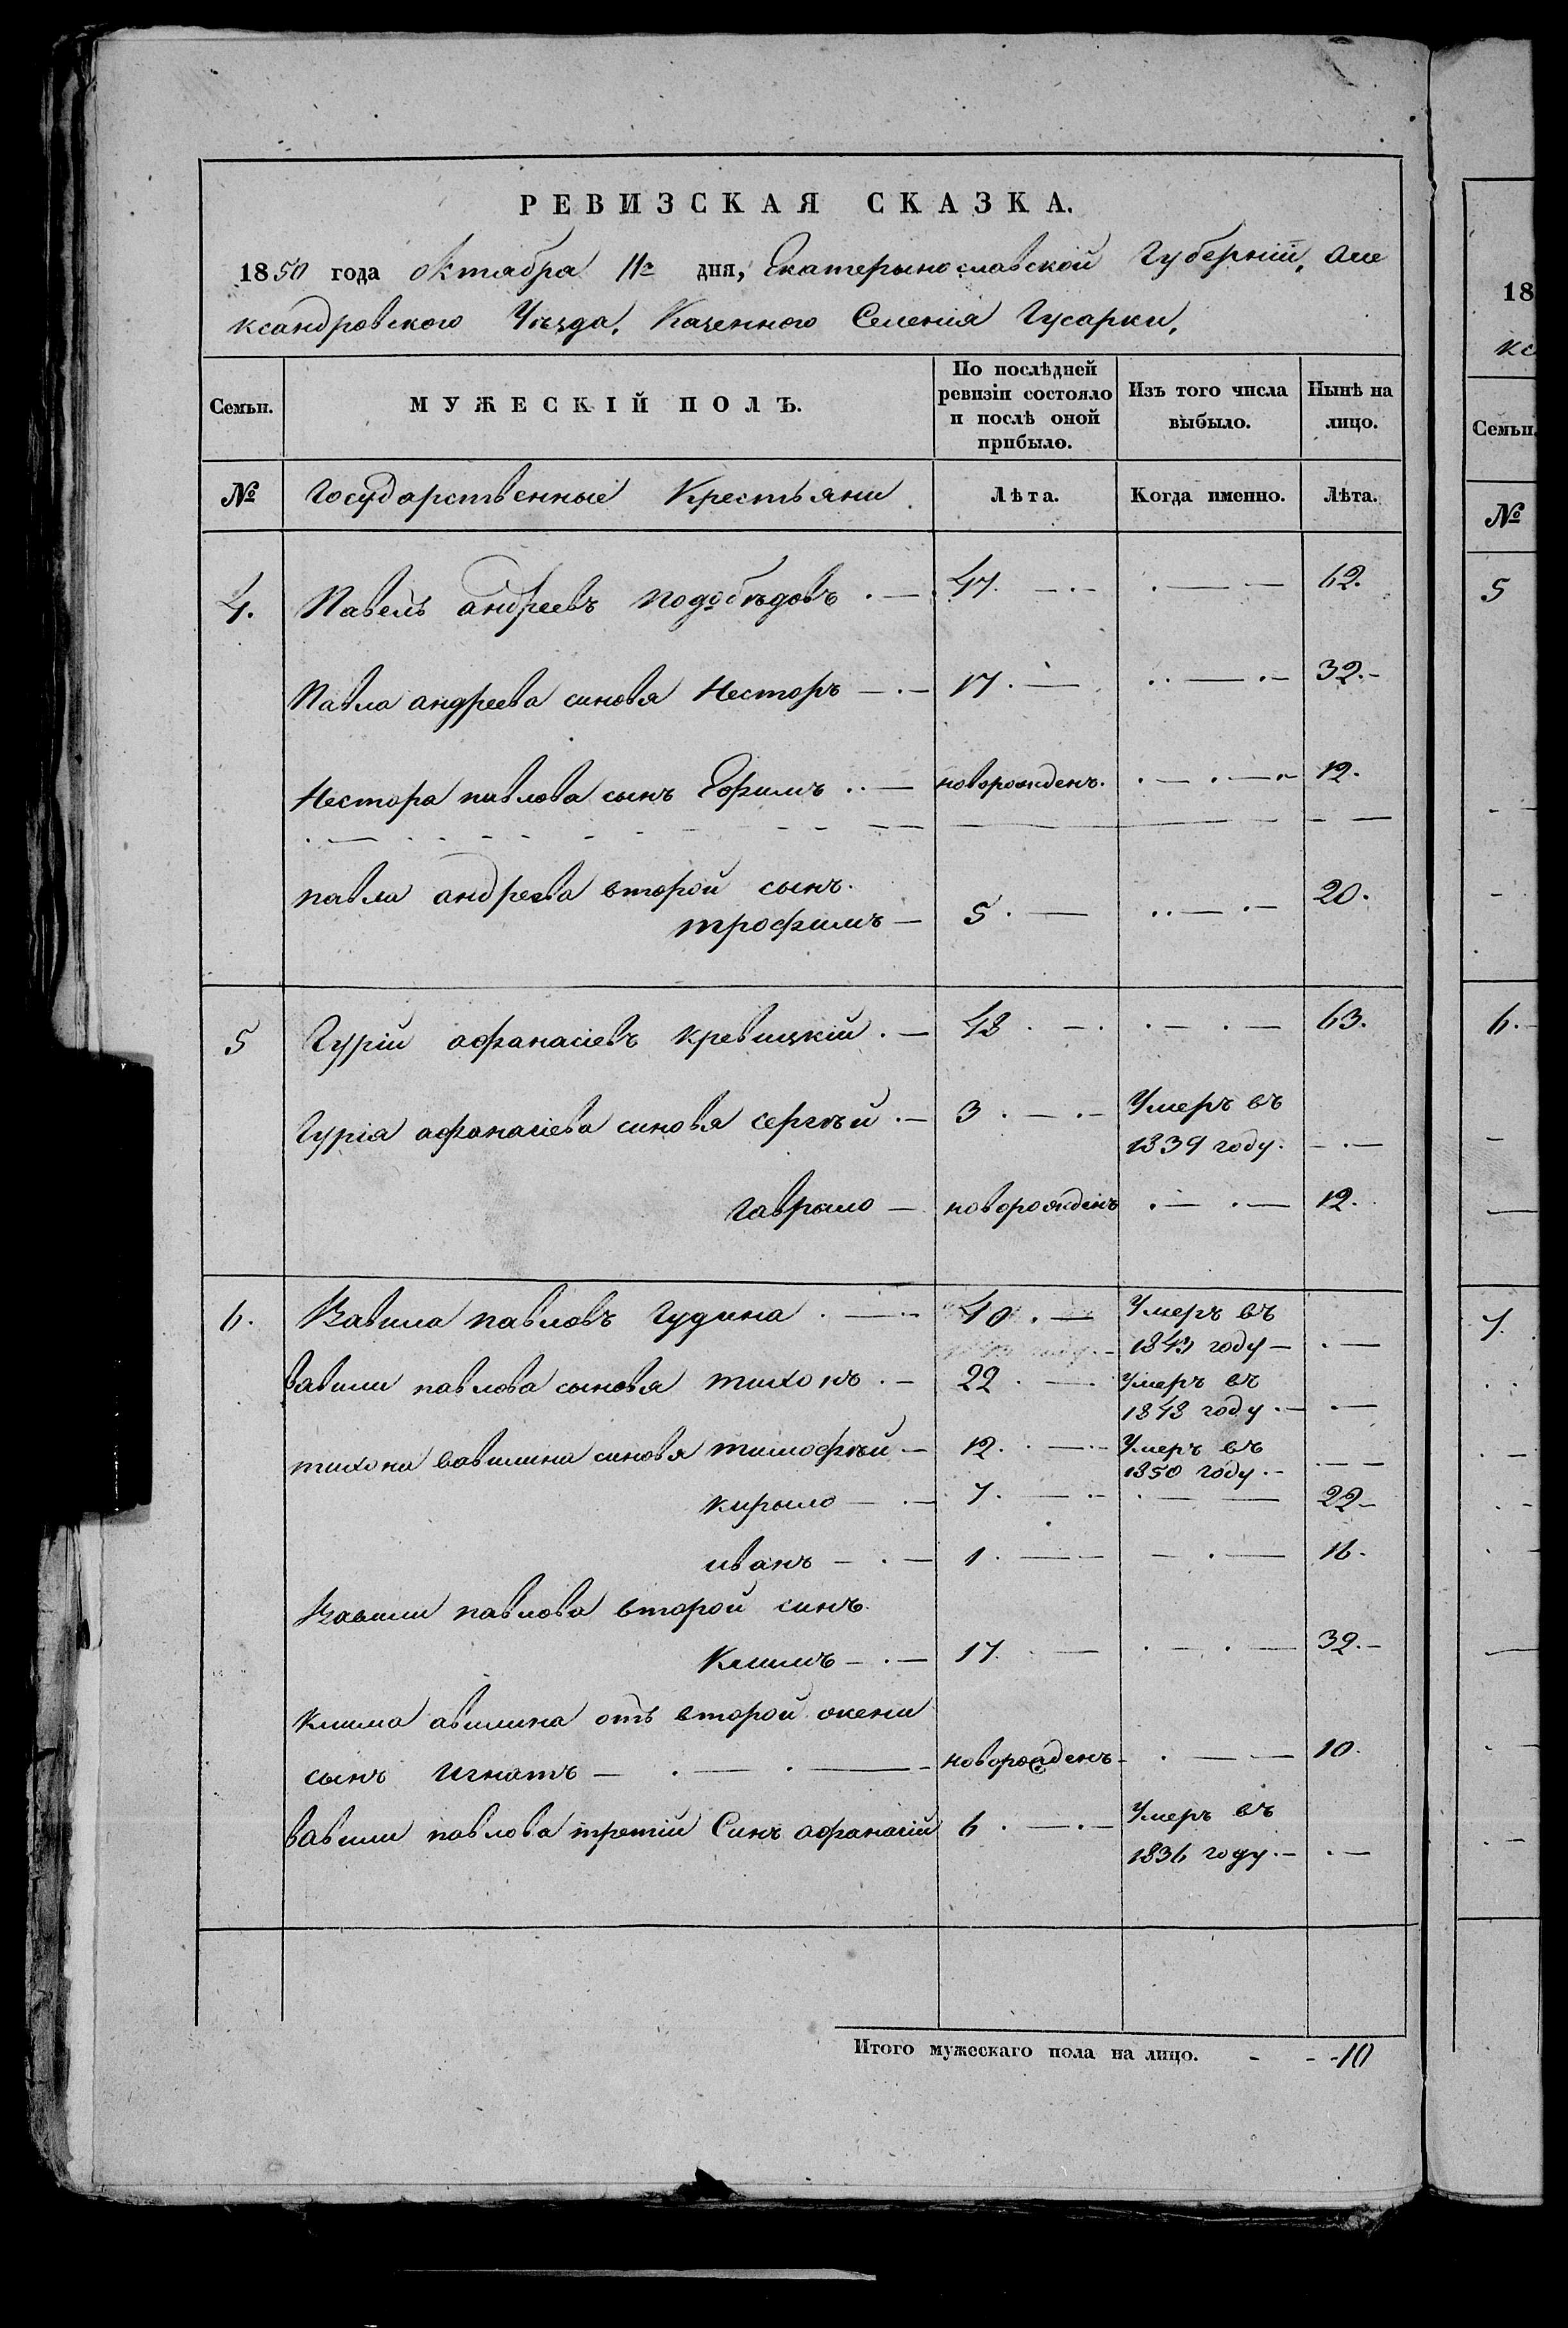 РЕВИЗСКАЯ СКАЗКА.
1850 года октабра 11го дня, Екатерынославской Губерніи, Але
ксандровского Уѣзда, Казенного Селенія Гусарки,
Семьи. МУЖЕСКІЙ ПОЛЪ. По послѣдней ревизіи состояло и послѣ оной прибыло. Изъ того числа выбыло. Нынѣ на лицо.
№ Государственные Крестьяни Лѣта. Когда именно. Лѣта.
4. Павелъ андреевъ подобѣдовъ 47. 62.
Павла андреева синовя Несторъ 17. 32.
Нестора павлова сынъ Ефимъ новорожденъ. 12.
павла андреева второй сынъ
трофимъ 5. 20.
5 Гурій афанасіевъ кревицкій 48. 63.
Гурія афанасіева синовя сергѣй 3. Умеръ въ
1839 году.
гаврыло новорожденъ 12.
6. Вавила павловъ гудина 40. Умеръ въ
1843 году
вавили павлова сыновя тихонъ 22. Умеръ въ
1848 году.
тихона вавилина синовя тимофѣй 12. Умеръ въ
1850 году.
кирыло 7. 22
иванъ 1. 16.
Вавили павлова второй синъ
Климъ 17. 32.
клима авилина отъ второй жени
сынъ игнатъ новорожденъ 10.
вавили павлова третій Синъ афанасій 6. Умеръ въ
1836 году.
Итого мужескаго пола на лицо. - - -10
18
кс
Семьи.
№
5
6.
7.